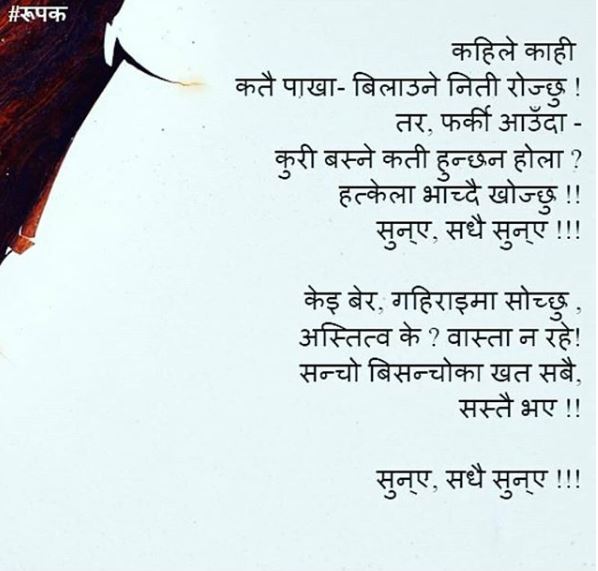 #रूपक
कहिले काही
कतै पाखा- बिलाउने निती रोज्छु !
तर, फर्की आउँदा -
कुरी बस्ने कती हुन्छन होला ?
हत्केला भाच्दै खोज्छु !!
सुन्ए, सधै सुन्ए !!!
केइ बेर, गहिराइमा सोच्छु ,
अस्तित्व के ? वास्ता न रहे!
सन्चो बिसन्चोका खत सबै,
सस्तै भए !!
सुन्ए, सधै सुन्ए !!!